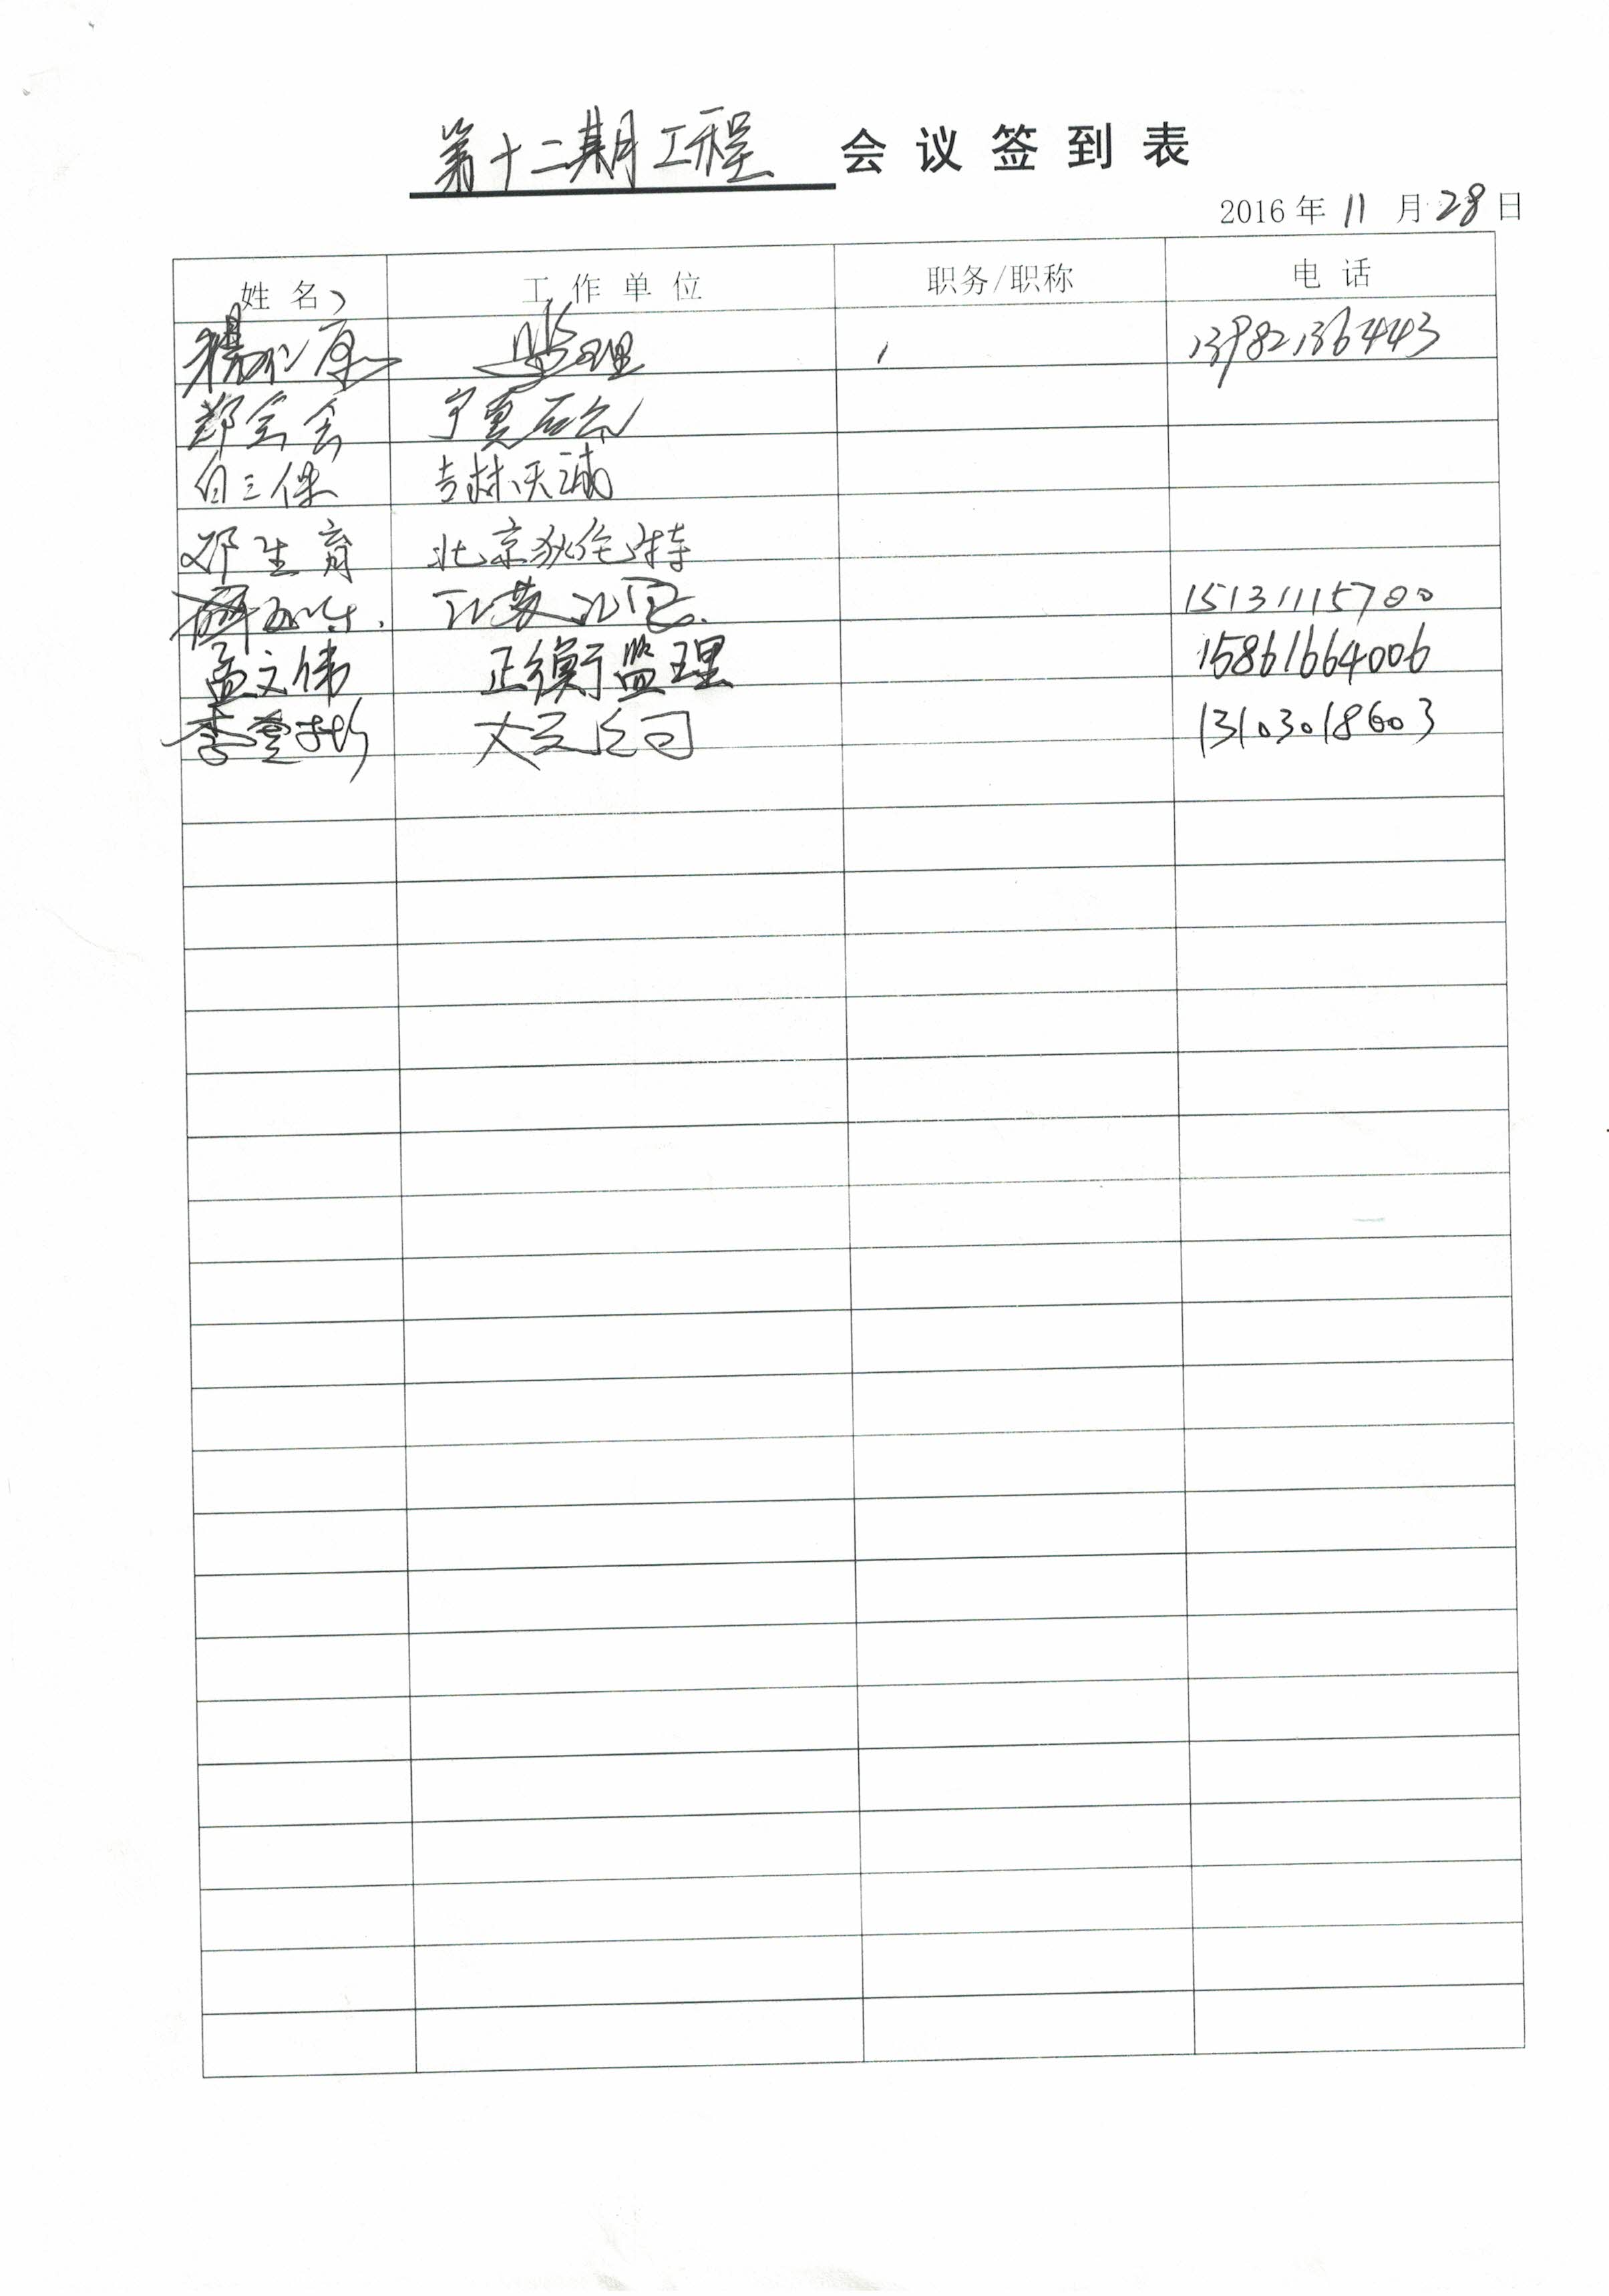 第十二期工程 会议签到表
2016年11月28日
姓名 工作单位 职务/职称 电话
杨 监理 13982136443
郑全会 宁夏石
白三保 吉林天诚
邓生育 北京狄伦特
15131115700
孟文伟 正衡监理 15861664006
李 大元公司 13103018603